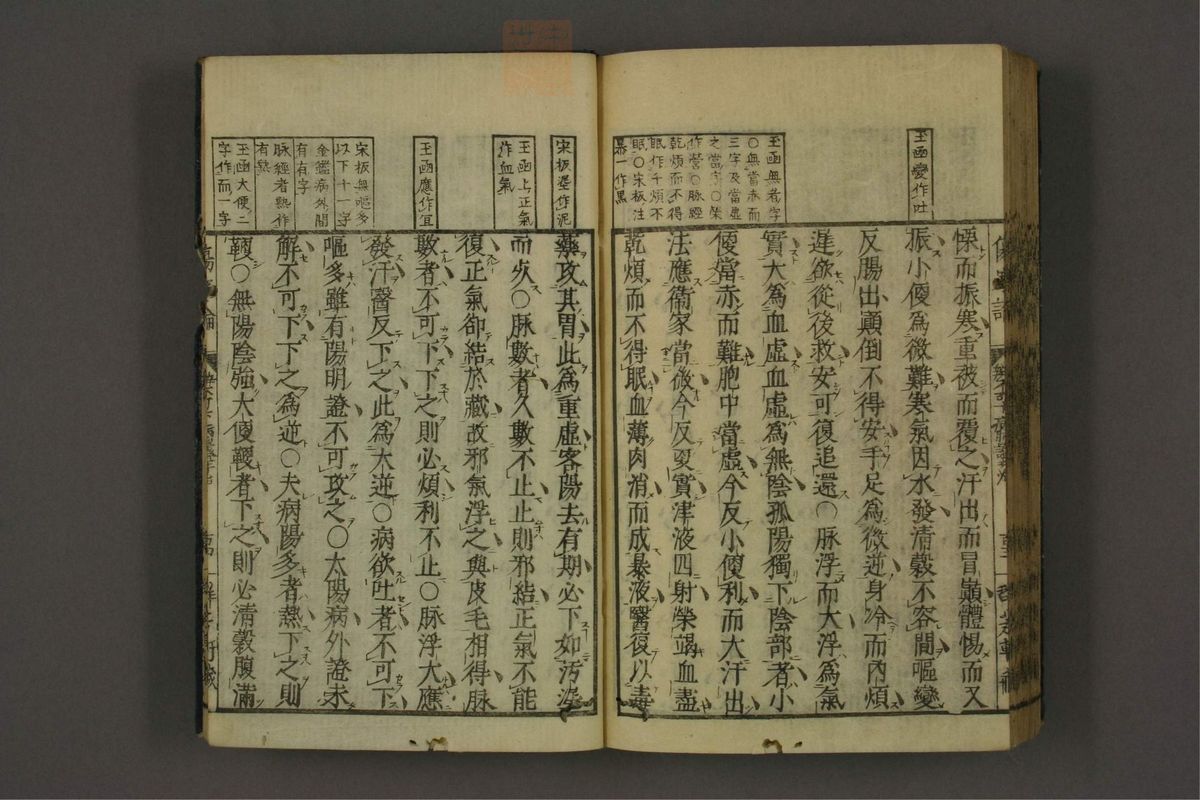 玉函變作吐
玉函無者字
○無當赤而
三字及當虛
之當字○榮
作營○脉經
乾煩而不得
眠作千煩不
眠○宋板注
暴一作黑
慄而振寒重被而覆之汗出而冒巔體惕而又
振小便爲微難寒氣因水發淸穀不容間嘔變
反腸出顚倒不得安手足爲微逆身冷而內煩
遲欲從後救安可復追還○脉浮而大浮爲氣
實大爲血虛血虛爲無陰孤陽獨下陰部者小
便當赤而難胞中當虛今反小便利而大汗出
法應衞家當微今反更實津液四射榮竭血盡
乾煩而不得眠血薄肉消而成暴液醫復以毒
宋板埿作泥
玉函上正氣
作血氣
玉函應作宜
宋板無嘔多
以下十一字
金鑑病外間
有有字
脉經者熱作
有熱
玉函大便二
字作而一字
藥攻其胃此爲重虛客陽去有期必下如汚埿
而死○脉數者久數不止止則邪結正氣不能
復正氣卻結於藏故邪氣浮之與皮毛相得脉
數者不可下下之則必煩利不止○脉浮大應
發汗醫反下之此爲大逆○病欲吐者不可下
嘔多雖有陽明證不可攻之○太陽病外證未
解不可下下之爲逆○夫病陽多者熱下之則
鞕○無陽陰強大便鞕者下之則必淸穀腹滿